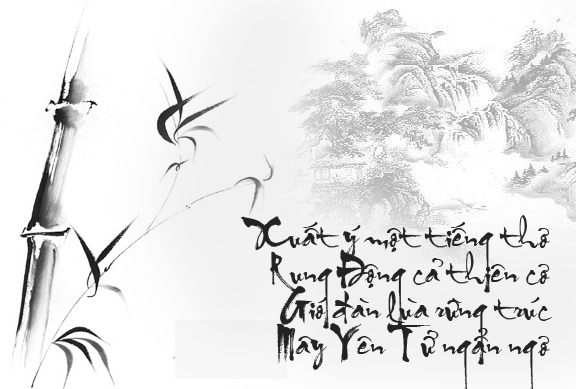 Xuất ý một tiếng thở
Rung Động cả thiên cơ
Gió đàn lùa rừng trúc
Mây Yên Tử ngẩn ngơ